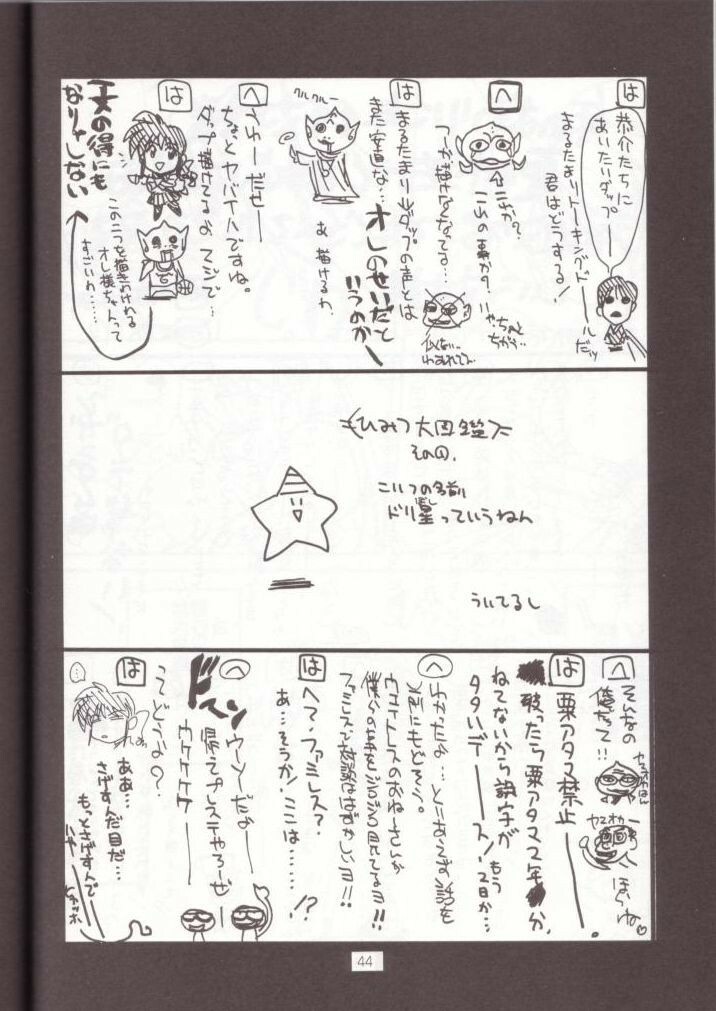 は
恭介たちに
あいたいダップ
まるたまりトーキングドールだッ
君はどうする!
へ
これか?
は
まるたまり山ダップの声とは
また安直な…
オレのせいだと
いうのか
クルクルー
あ 描けるわ
へ
うわーだせー
ちょっとヤバイハですね。
ダップ描けてるよ マジで…
は
この二つを描きわけれる
オレ様ちゃんって
すごいわ……
一文の得にも
なりゃしない
ひみつ大図鑑
その①.
こいつの名前
ドリ星っていうねん
ぼし
ういてるし
へ
そんなの
俺だって!!
ヤマオカー
ほらね♡
は
栗アタマ禁止
破ったら栗アタマ2年
ねてないから誤字が
もう2日か…
タタいデース!
へ
わかったよ…とにあえず話を
元にもどそう。
ウエイトレスのおねーさんが
僕らの事をジロジロ見てるヨ!!
ファミレスで
はずかしいヨ!!
は
へて、ファミレス?
あ…そうか!ここは……!?
へ
ドドーン
ウーソだよー
帰ってプレステやろーぜ
ウケケケケ
は
ってどうよな?
ああ…
さげすんだ目だ…
もっとさげすんで
44